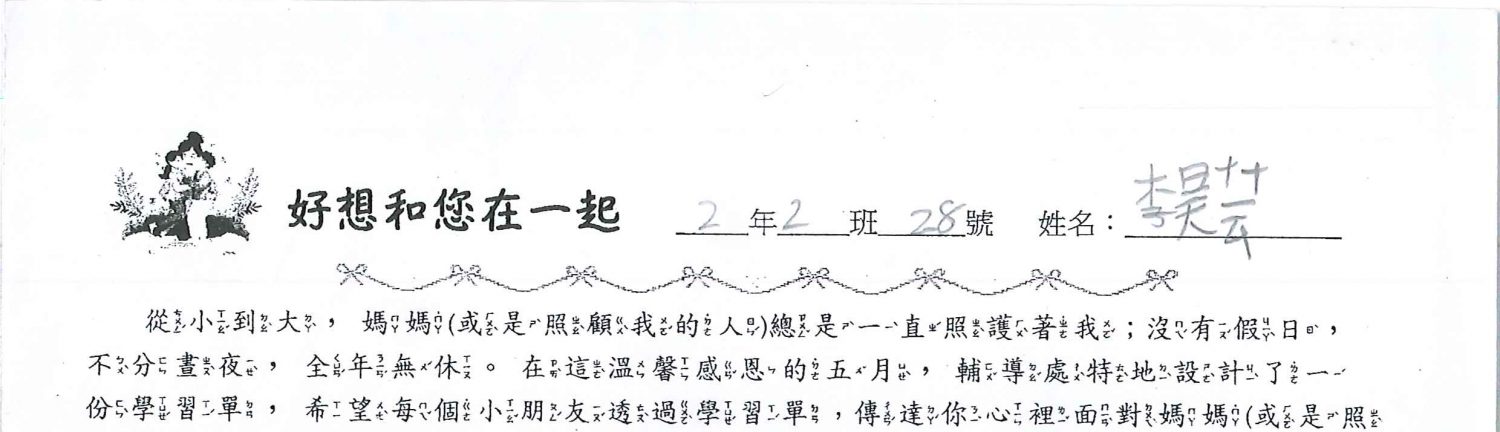 好想和您在一起 2年2班28號 姓名：李昊芸
從小到大，媽媽(或是照顧我的人)總是一直照護著我；沒有假日，
不分晝夜，全年無休。在這溫馨感恩的五月，輔導處特地設計了一
份學習單，希望每個小朋友透過學習單，傳達你心裡面對媽媽(或是照